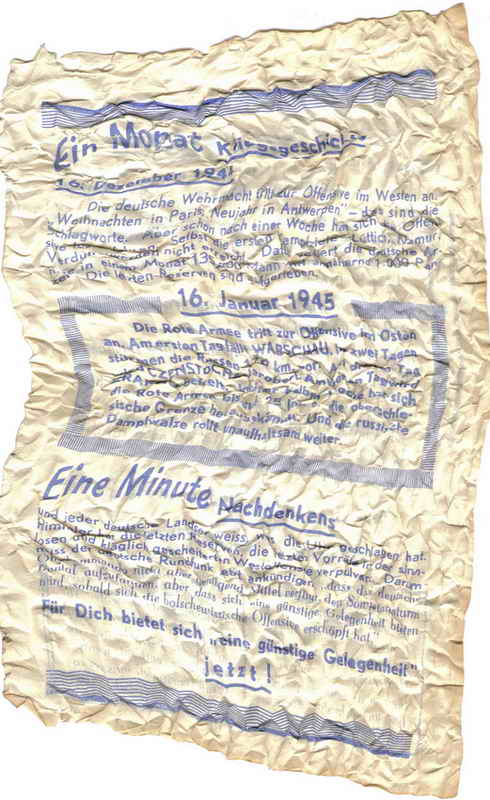 Ein Monat Kriegsgeschichte
16. Dezember 1944
Die deutsche Wehrmacht tritt zur Offensive im Westen an.
„Weihnachten in Paris, Neujahr in Antwerpen" – das sind die
Schlagworte. Aber schon nach einer Woche hat sich die Offen-
sive Selbst die ersten Lüttich, Namur,
Verdun nicht erreicht. Dafür verliert die deutsche
in einem Monat 1 000 Pan-
zer. Die letzten Reserven sind aufgerieben.
16. Januar 1945
Die Rote Armee tritt zur Offensive im Osten
an. Am ersten Tag fällt WARSCHAU. In zwei Tagen
stürmen die Russen km vor. Am Tag
CZENSTOCHAU Tag wird
hat sich
die Rote Armee bis auf 25 km an die oberschle-
sische Grenze herangekämpft. Und die russische
Dampfwalze rollt unaufhaltsam weiter.
Eine Minute Nachdenkens
und jeder deutsche Landser weiss, was die Uhr geschlagen hat.
Himmler hat die letzten Reserven, die letzten Vorräte in der sinn-
losen und kläglich gescheiterten Westoffensive verpulvert. Darum
muss der deutsche Rundfunk jetzt ankündigen, „dass das deutsche
Oberkommando nicht über genügend Mittel verfügt, den Sowjetansturm
frontal aufzufangen, aber dass sich eine günstige Gelegenheit bieten
wird, sobald sich die bolschewistische Offensive erschöpft hat."
Für Dich bietet sich „eine günstige Gelegenheit"
jetzt!